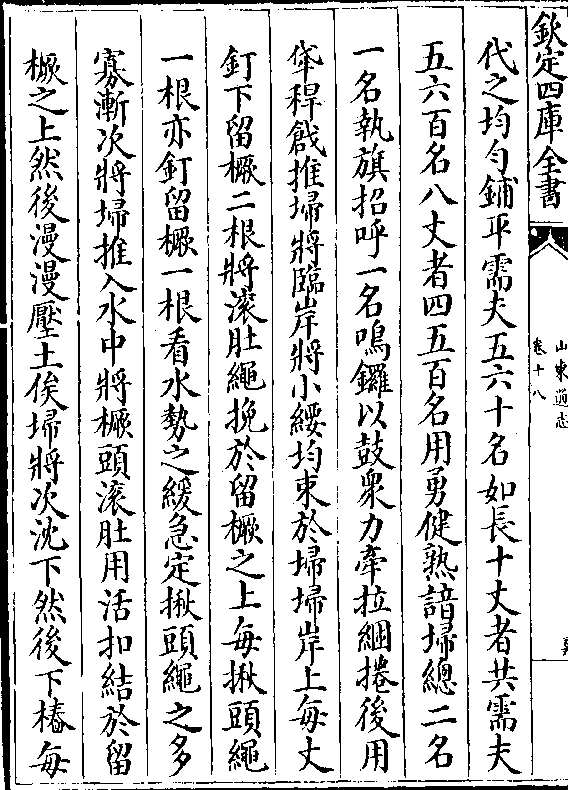 欽定四庫全書
山東通志
卷十八
代之均勻鋪平需夫五六十名如長十丈者共需夫
五六百名八丈者四五百名用勇健熟諳埽總二名
一名執旗招呼一名鳴鑼以鼓衆力牽拉綑捲後用
牮稈戧推埽將臨岸將小綆均束於埽埽岸上每丈
釘下留橛二根將滚肚繩挽於留橛之上每揪頭繩
一根亦釘留橛一根看水勢之緩急定揪頭繩之多
寡漸次將埽推入水中將橛頭滚肚用活扣結於留
橛之上然後漫漫壓土俟埽將次沈下然後下樁每